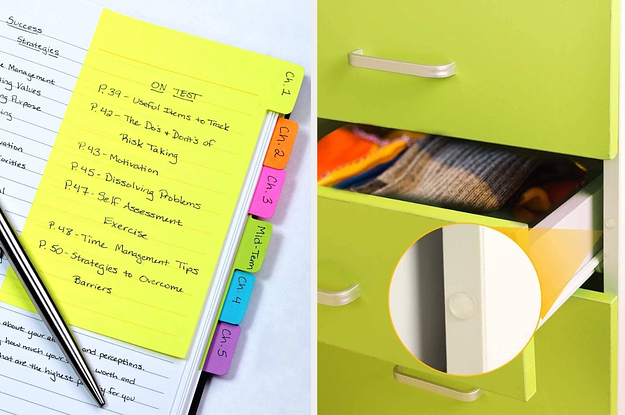 Success
Strategies
Management
ing Values
ng Purpose
ing
orities
ON TEST
P.39 - Useful Items to Track
P.42 - The Do's & Dont's of
Risk Taking
P.43 - Motivation
P.45 - Dissolving Problems
P.47 - Self Assessment
Exercise
P.48 - Time Management Tips
P.50 - Strategies to Overcome
Barriers
Ch. 1
Ch. 2
Ch. 3
Mid-Term
Ch. 4
Ch. 5
about your and perceptions.
how much your worth and
hat are the highest for you